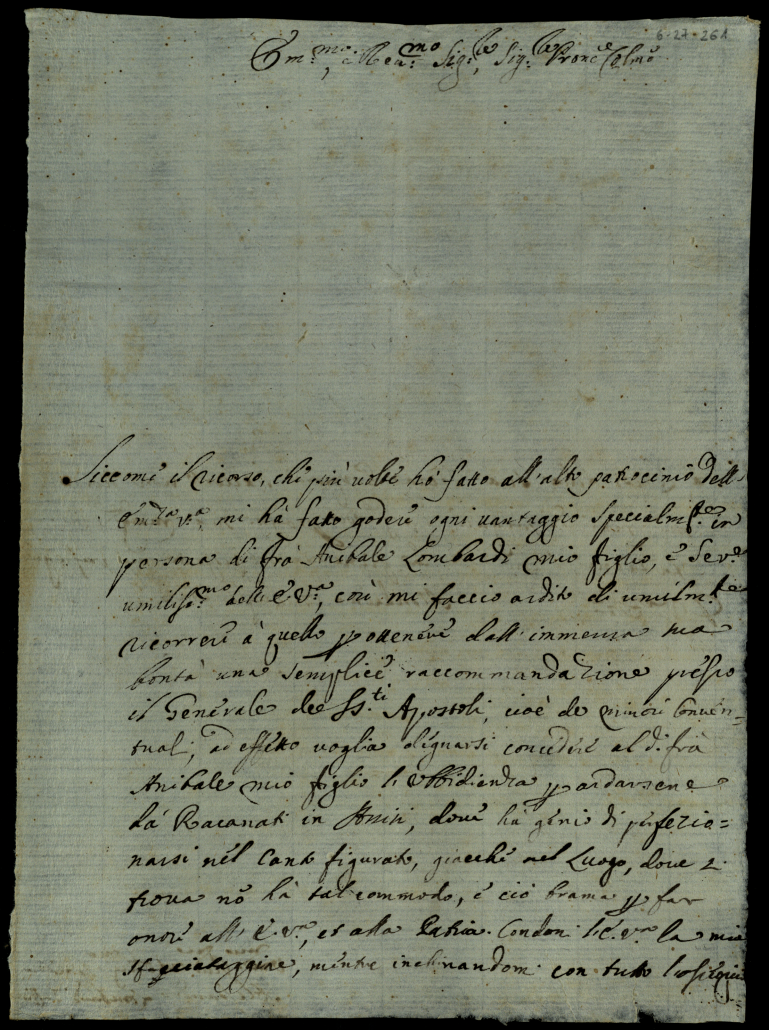 6-27-261
Em.mo, e Reu.mo Sig.re, Sig.re Prone Colmo
Siccome il ricorso, che più volte hó fatto all'alto patrocinio dell'
Em.za V.ra mi há fatto godere ogni vantaggio specialm.te in
persona di frà Anibale Lombardi mio figlio, e Ser.e
umiliss.mo dell'E. V.ra, così mi faccio ardito di umilm.te
ricorrere à quello p ottenere dall'immensa sua
bontà una semplice raccommandazione presso
il Generale de SS.ti Apostoli, cioè de minori Conven=
tuali, ad effetto voglia degnarsi concedere al d. frà
Anibale mio figlio l'ubbidienza p andarsene
da Racanati in Assisi, dove hà genio di perfezio=
narsi nel Canto figurato, giacchè nel Luogo, dove si
trova nõ há tal commodo, e ciò brama p far
onore all'E. V.ra, et alla Patria. Condoni l'E. V.ra la mia
sfacciataggine, mentre inchinandomi con tutto l'ossequio